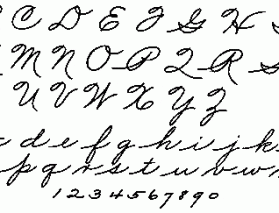 C D E F G H
M N O P Q R S
U V W X Y Z
c d e f g h i j k
p q r s t u v w
1 2 3 4 5 6 7 8 9 0